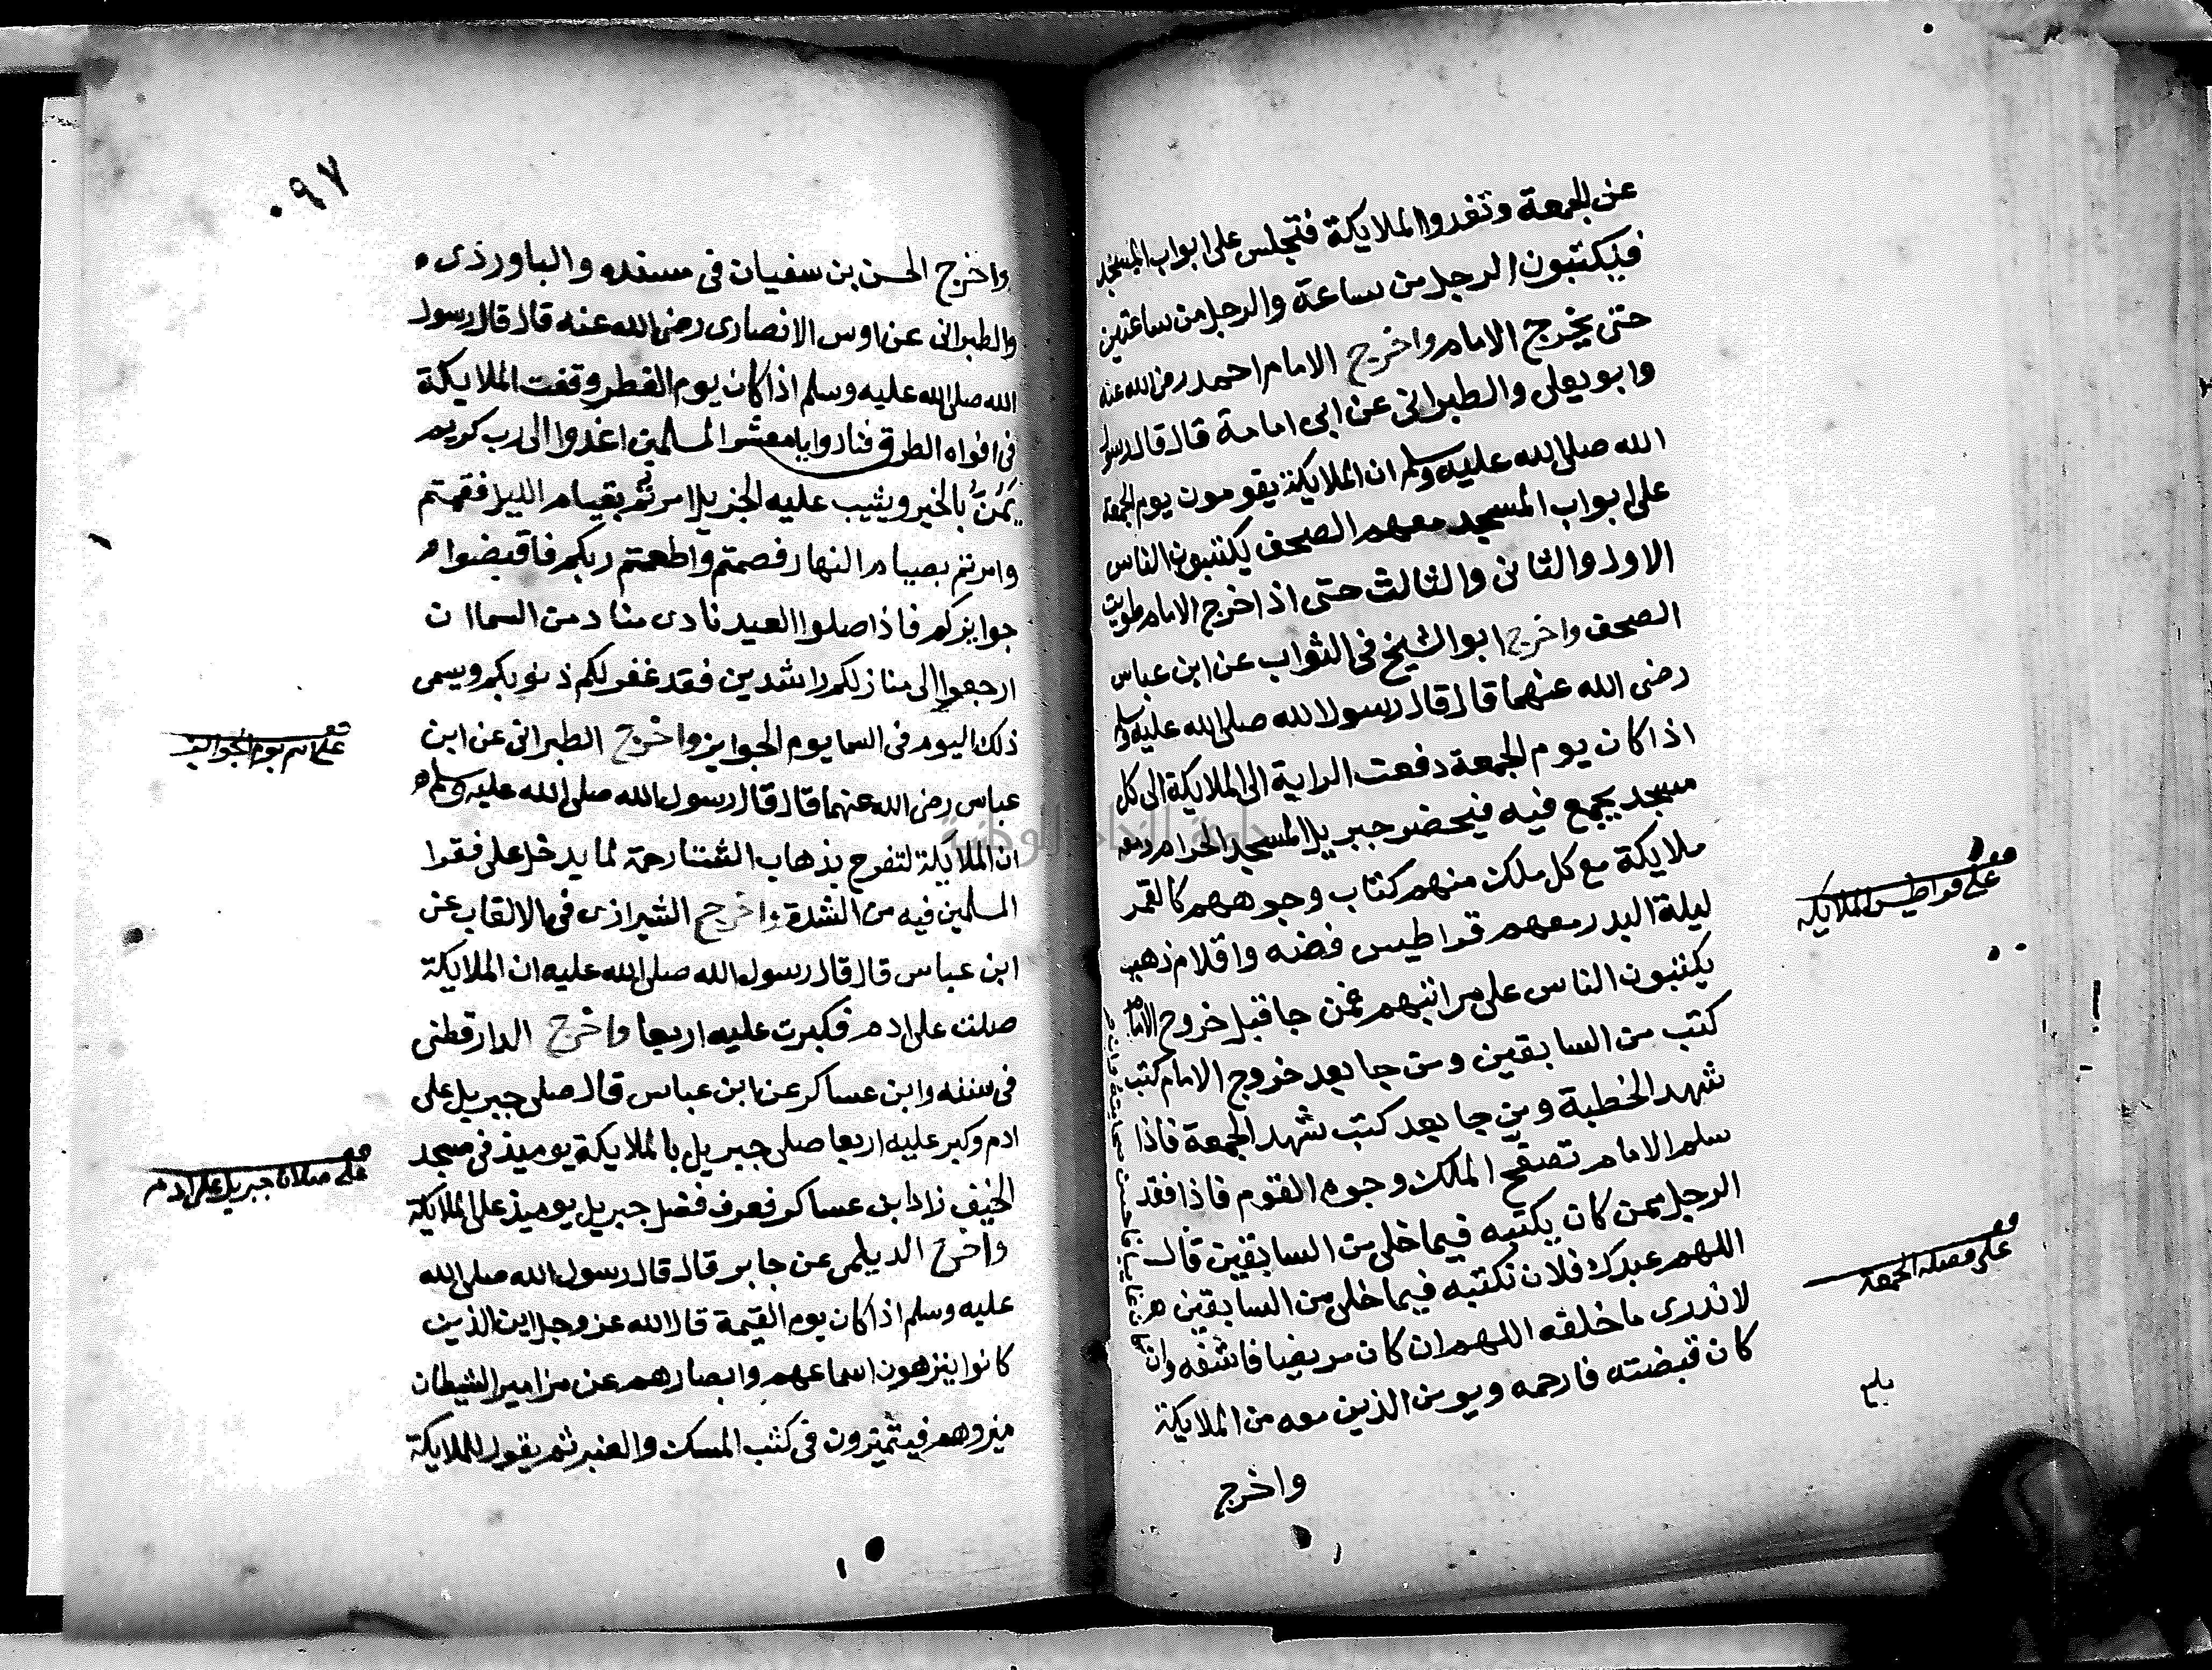 عن الجمعة وتغدوا الملايكة فتجلس على ابواب المسجد
فيكتبون الرجل من ساعة والرجل من ساعتين
حتى يخرج الامام واخرج الامام احمد رضى الله عنه
وابو يعلى والطبرانى عن ابى امامة قال قال رسول
الله صلى الله عليه وسلم ان الملايكة يقومون يوم الجمعة
على ابواب المسجد معهم الصحف يكتبون الناس
الاول والثانى والثالث حتى اذا خرج الامام طويت
الصحف واخرج ابو الشيخ فى الثواب عن ابن عباس
رضى الله عنهما قال قال رسول الله صلى الله عليه وسلم
اذا كان يوم الجمعة دفعت الراية الى الملايكة الى كل
مسجد يجمع فيه فيحضر جبريل المسجد الحرام ومعه
ملايكة مع كل ملك منهم كتاب وجوههم كالقمر
ليلة البدر معهم قراطيس فضه واقلام ذهب
يكتبون الناس على مراتبهم فمن جا قبل خروج الامام
كتب من السابقين ومن جا بعد خروج الامام كتب
شهد الخطبة ومن جا بعد كتب شهد الجمعة فاذا
سلم الامام تصفح الملك وجوه القوم فاذا فقد
الرجل ممن كان يكتبه فيما خلى من السابقين قال
اللهم عبدك فلان نكتبه فيما خلى من السابقين
لا ندرى ما خلفه اللهم ان كان مريضا فاشفه وان
كان قبضته فارحمه ويومن الذين معه من الملايكة
واخرج
قف
على قراطيس الملايكة
قف
على فضل الجمعة
بلغ
٠٩٧
واخرج الحسن بن سفيان فى مسنده والباوردى
والطبرانى عن اوس الانصارى رضى الله عنه قال قال رسول
الله صلى الله عليه وسلم اذا كان يوم الفطر وقفت الملايكة
فى افواه الطرق فنادوا يا معشر المسلمين اغدوا الى رب كريم
يَمُنُّ بالخير ويثيب عليه الجزيل امرتم بقيام الليل فقمتم
وامرتم بصيام النهار فصمتم واطعتم ربكم فاقبضوا
جوايزكم فاذا صلوا العيد نادى مناد من السما ان
ارجعوا الى منازلكم راشدين فقد غفر لكم ذنوبكم ويسمى
ذلك اليوم فى السما يوم الجوايز واخرج الطبرانى عن ابن
عباس رضى الله عنهما قال قال رسول الله صلى الله عليه وسلم
ان الملايكة لتفرح بذهاب الشتا رحمة لما يدخل على فقرا
المسلمين فيه من الشدة واخرج الشيرازى فى الالقاب عن
ابن عباس قال قال رسول الله صلى الله عليه ان الملايكة
صلت على ادم فكبرت عليه اربعا واخرج الدارقطنى
فى سننه وابن عساكر عن ابن عباس قال صلى جبريل على
ادم وكبر عليه اربعا صلى جبريل بالملايكة يوميذ فى مسجد
الخيف زاد ابن عساكر فعرف فضل جبريل يوميذ على الملايكة
واخرج الديلمى عن جابر قال قال رسول الله صلى الله
عليه وسلم اذا كان يوم القيمة قال الله عز وجل اين الذين
كانوا ينزهون اسماعهم وابصارهم عن مزامير الشيطان
ميزوهم فيتميزون فى كثب المسك والعنبر ثم يقول للملايكة
قف
قف
على صلاة جبريل على ادم
جامعة النجاح الوطنية